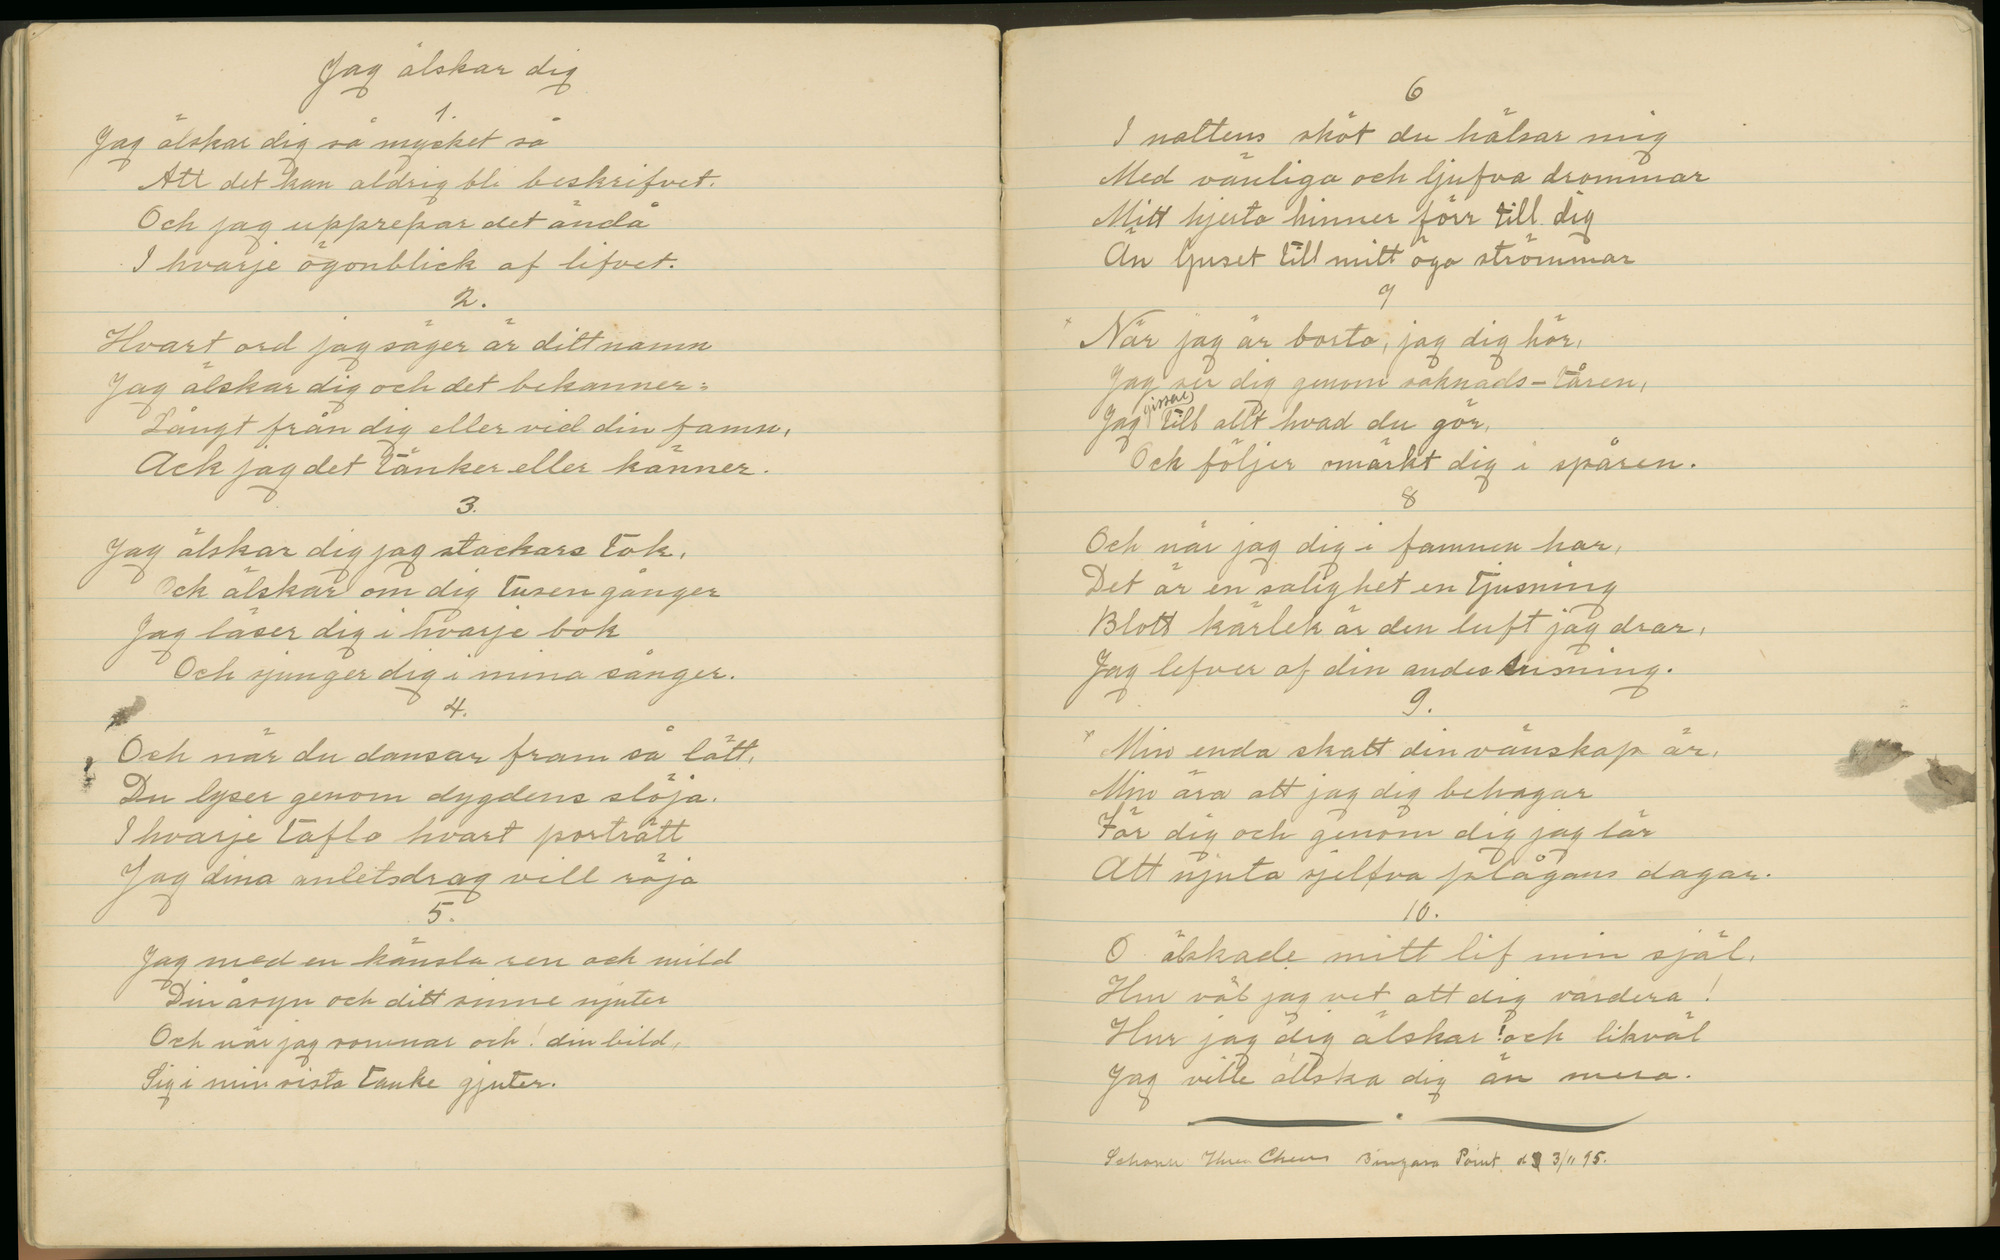 Jag älskar dig
1.
Jag älskar dig så mycket så
Att det kan aldrig bli beskrifvet.
Och jag upprepar det ändå
I hvarje ögonblick af lifvet.
2.
Hvart ord jag säger är ditt namn
Jag älskar dig och det bekänner:
Långt från dig eller vid din famn,
Ack jag det tänker eller känner.
3.
Jag älskar dig jag stackars tok,
Och älskar om dig tusen gånger
Jag läser dig i hvarje bok
Och sjunger dig i mina sånger.
4.
Och när du dansar fram så lätt,
Du lyser genom dygdens slöja.
I hvarje tafla hvart porträtt
Jag dina anletsdrag vill röja
5.
Jag med en känsla ren och mild
Din åsyn och ditt sinne njuter
Och när jag somnar och! din bild,
Sig i min sista tanke gjuter.
6
I nattens sköt du hälsar mig
Med vänliga och ljufva drömmar
Mitt hjerta hinner förr till dig
Än ljuset till mitt öga strömmar
7
x När jag är borta, jag dig hör,
Jag ser dig genom saknads-tåren,
Jag gissar till allt hvad du gör,
Och följer omärkt dig i spåren.
8
Och när jag dig i famnen har,
Det är en salighet en tjusning
Blott kärlek är den luft jag drar,
Jag lefver af din andes susning.
9.
x Min enda skatt din vänskap är,
Min ära att jag dig behagar
För dig och genom dig jag lär
Att njuta sjelfva plågans dagar.
10.
O älskade mitt lif min själ,
Hur väl jag vet att dig värdera!
Hur jag dig älskar! och likväl
Jag ville älska dig än mera.
Point d 3/11 95.